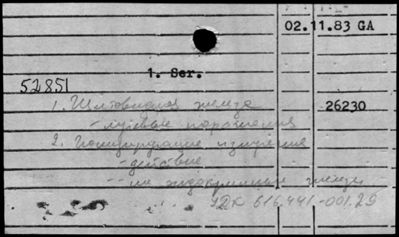 02.11.83 GA
1. Ser.
52851
1. Щитовидная железа
26230
- лучевые поражения
2. Ионизирующие излучения
- действие
-- на эндокринные железы
УДК 616.441-001.29